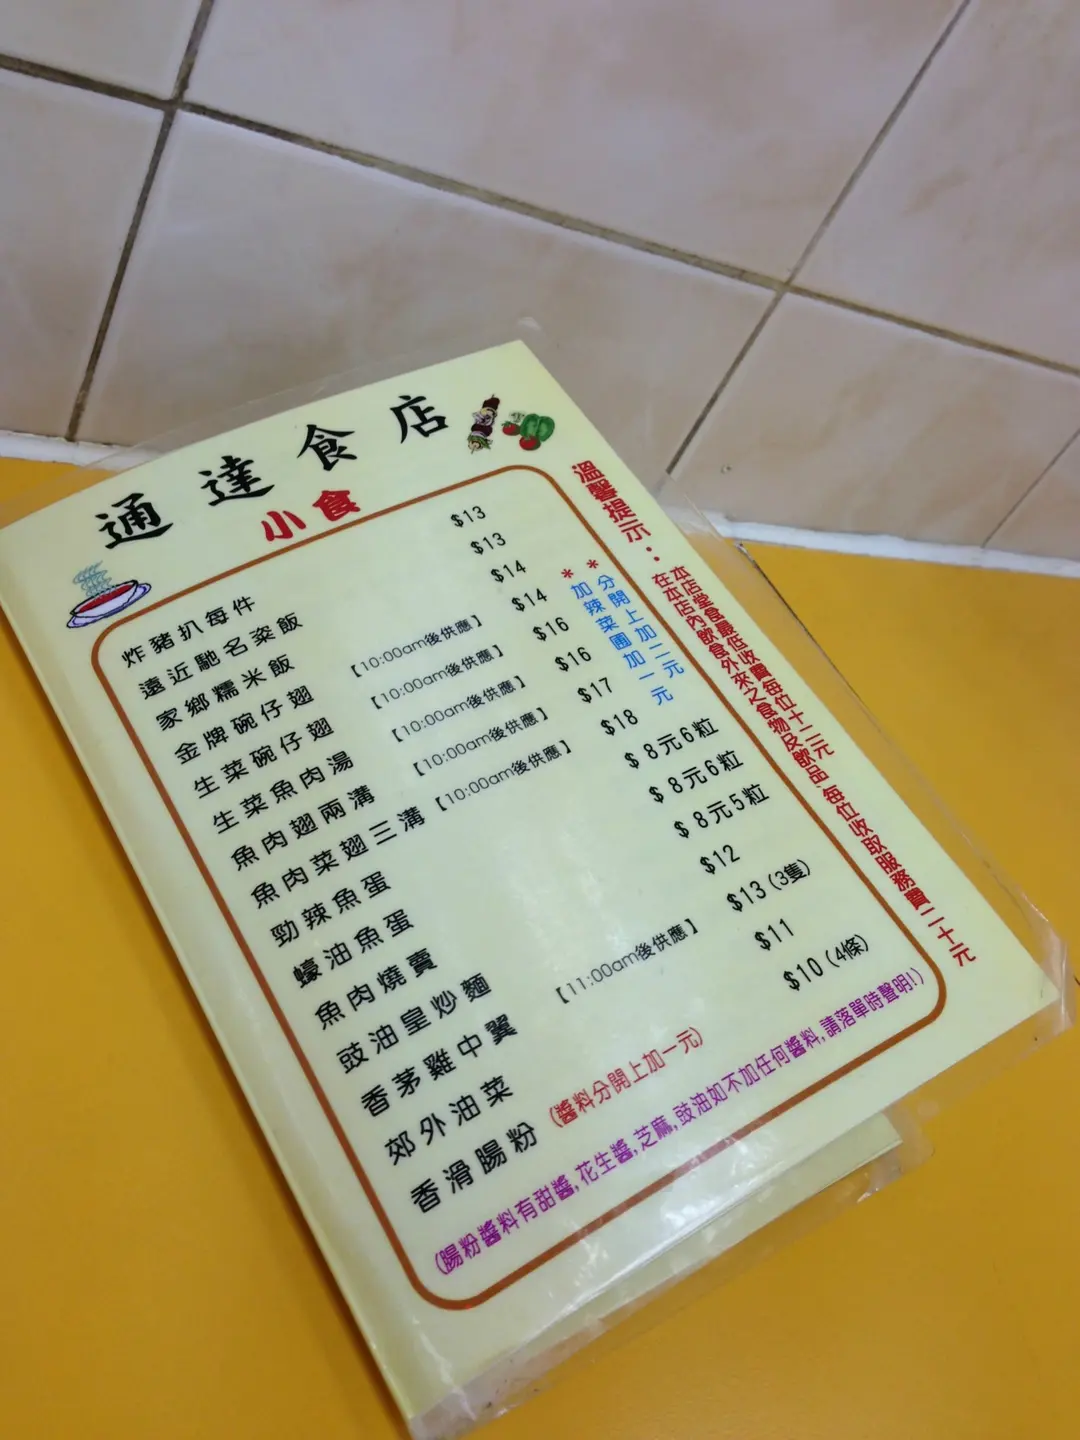 通達食店
小食
炸豬扒每件 $13
遠近馳名粢飯 $13
家鄉糯米飯 $14
金牌碗仔翅 【10:00am後供應】 $14
生菜碗仔翅 【10:00am後供應】 $16
生菜魚肉湯 【10:00am後供應】 $16
魚肉翅兩溝 【10:00am後供應】 $17
魚肉菜翅三溝 【10:00am後供應】 $18
勁辣魚蛋 $8元6粒
蠔油魚蛋 $8元6粒
魚肉燒賣 $8元5粒
豉油皇炒麵 $12
香茅雞中翼 【11:00am後供應】 $13(3隻)
郊外油菜 $11
香滑腸粉 (醬料分開上加一元) $10(4條)
(腸粉醬料有甜醬,花生醬,芝麻,豉油如不加任何醬料,請落單時聲明!)
*分開上加二元
*加辣菜圃加一元
溫馨提示:
本店堂食最低收費每位十二元
在本店內飲食外來之食物及飲品,每位收取服務費二十元